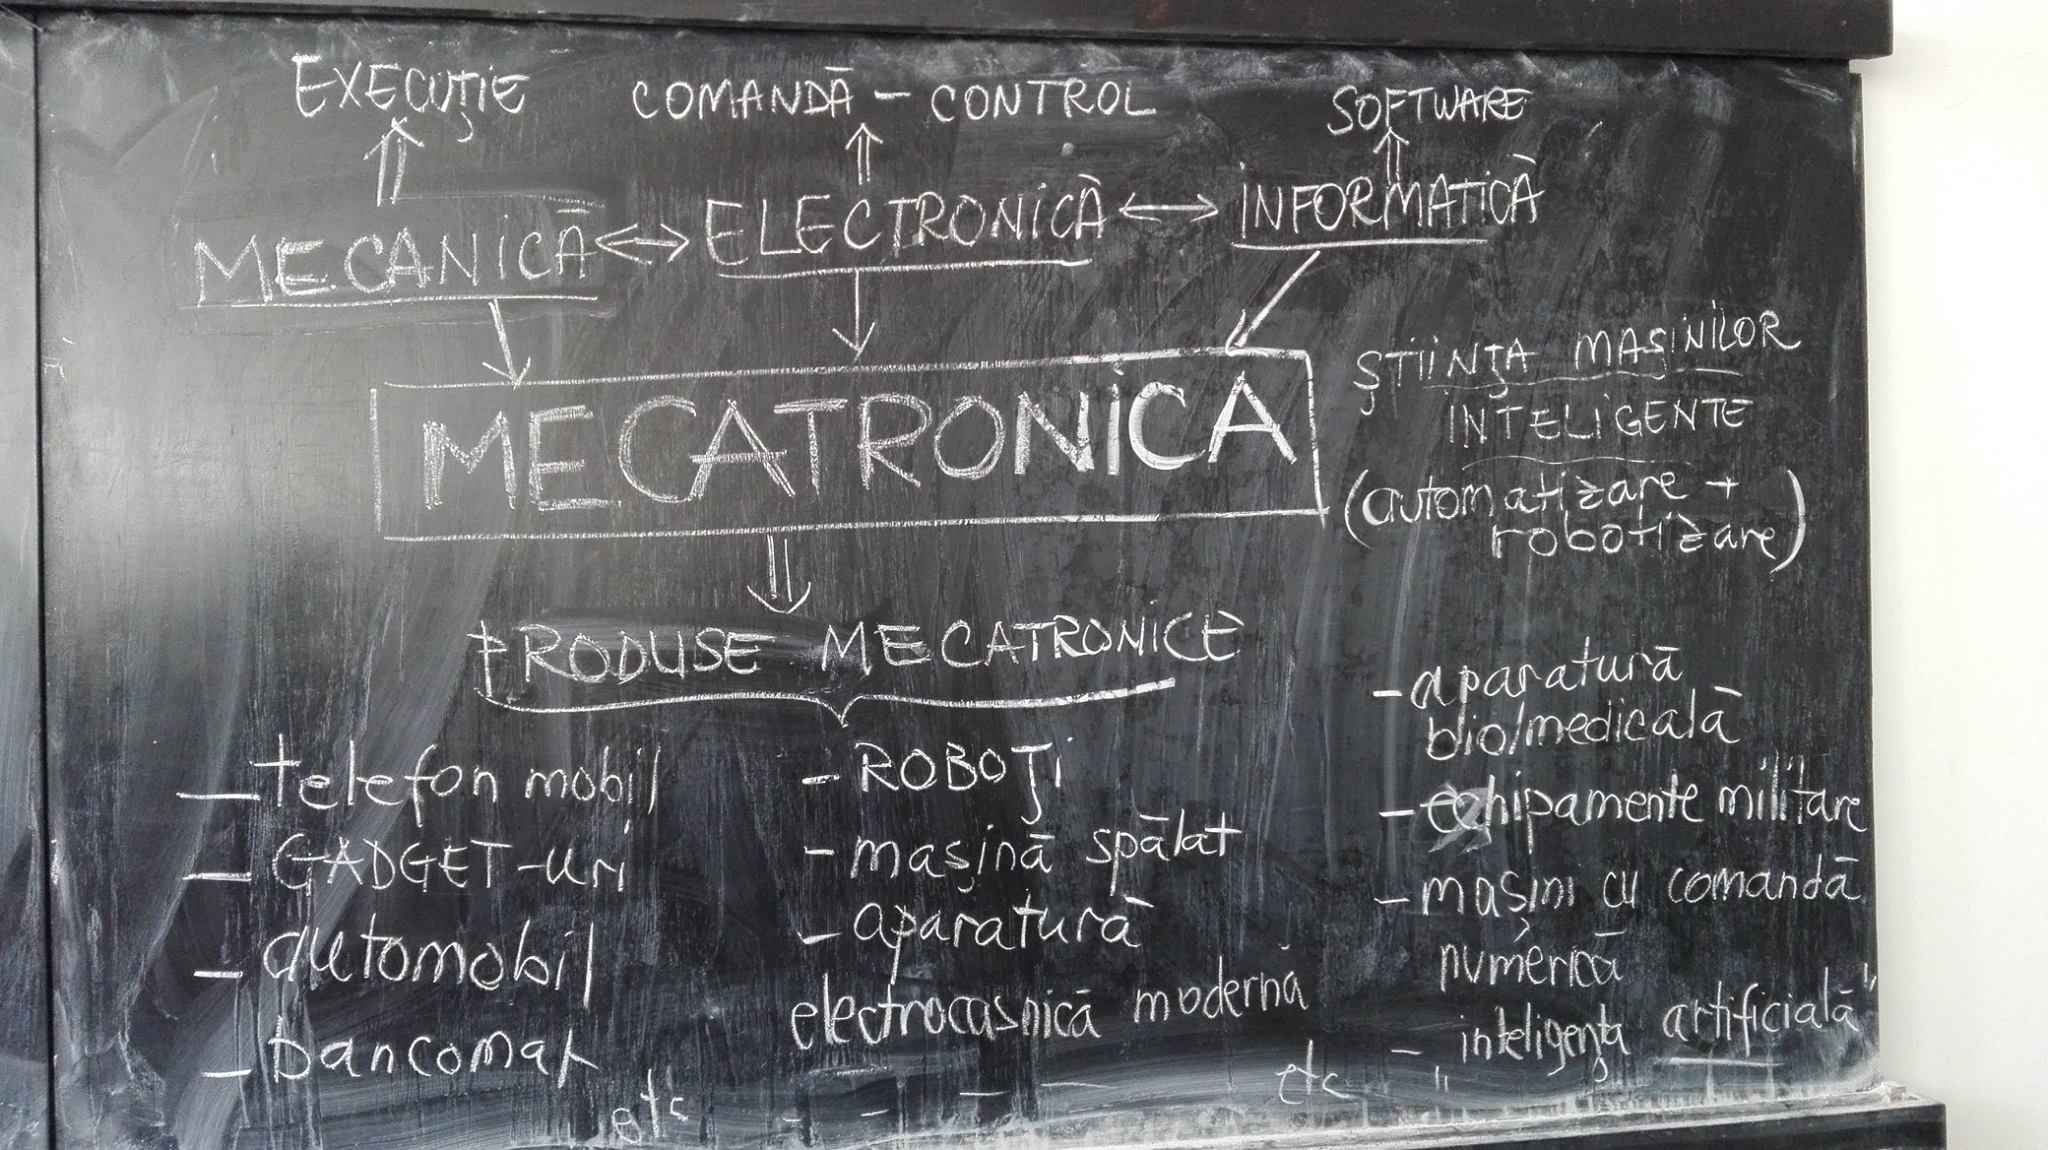 EXECUȚIE COMANDĂ - CONTROL SOFTWARE
MECANICĂ ⇔ ELECTRONICĂ ⇔ INFORMATICĂ
MECATRONICA
ȘTIINȚA MAȘINILOR
INTELIGENTE
(automatizare +
robotizare)
PRODUSE MECATRONICE
- telefon mobil
- GADGET-uri
- automobil
- bancomat
etc
- ROBOȚI
- mașină spălat
- aparatură
electrocasnică modernă
- - - -
- aparatură
bio/medicală
- echipamente militare
- mașini cu comandă
numerică
- "inteligența artificială"
etc